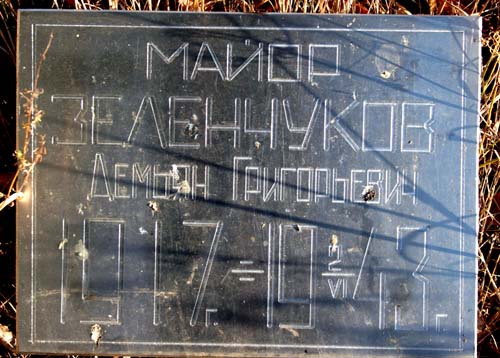 МАЙОР
ЗЕЛЕНЧУКОВ
ДЕМЬЯН ГРИГОРЬЕВИЧ
1917г. ÷ 10 2/VI 43г.